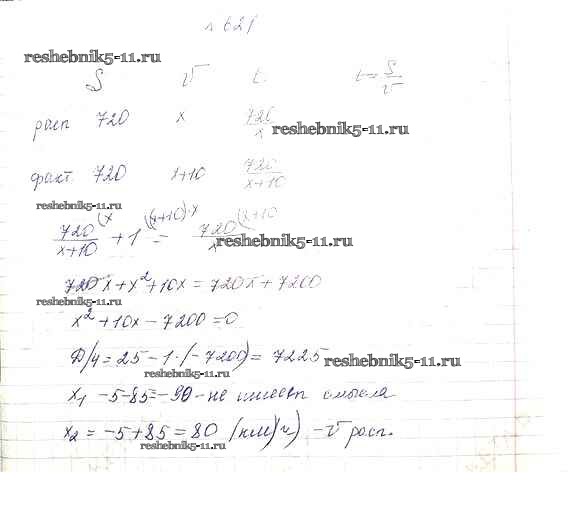 № 621
reshebnik5-11.ru
S v t t = S/v
расп 720 x 720/x reshebnik5-11.ru
факт. 720 x+10 720/(x+10)
reshebnik5-11.ru
720/(x+10) (x + 1 ((x+10)·x = 720/x (x+10 reshebnik5-11.ru
720x + x² + 10x = 720x + 7200
reshebnik5-11.ru
x² + 10x - 7200 = 0
D/4 = 25 - 1·(-7200) = 7225 reshebnik5-11.ru
reshebnik5-11.ru
x₁ -5-85=-90 - не имеет смысла
x₂ = -5+85 = 80 (км/ч) - v расп.
reshebnik5-11.ru